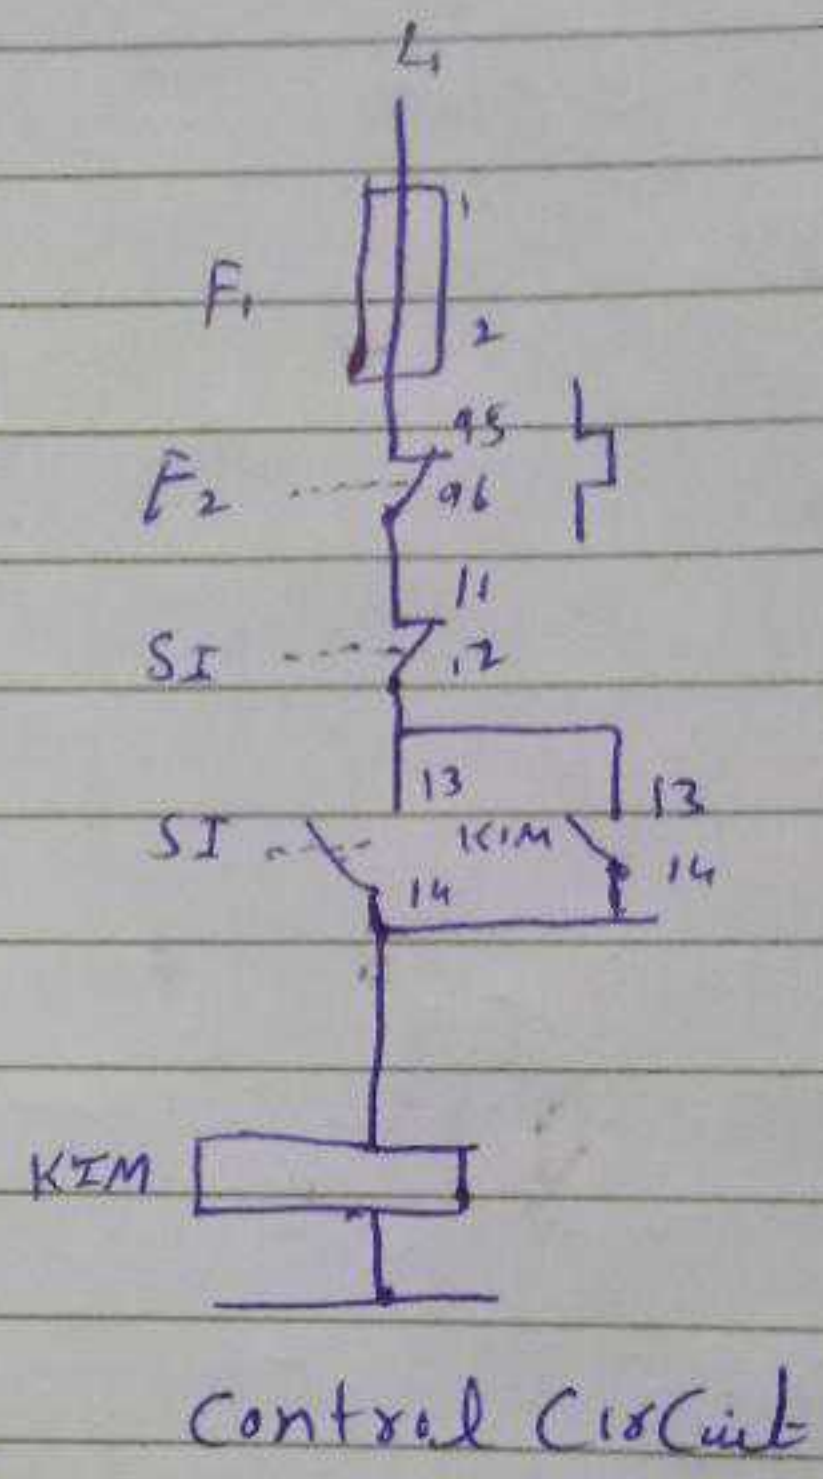 L1
1
F1
2
95
F2 96
11
SI 12
13 13
SI KIM 14
14
KIM
Control Circuit